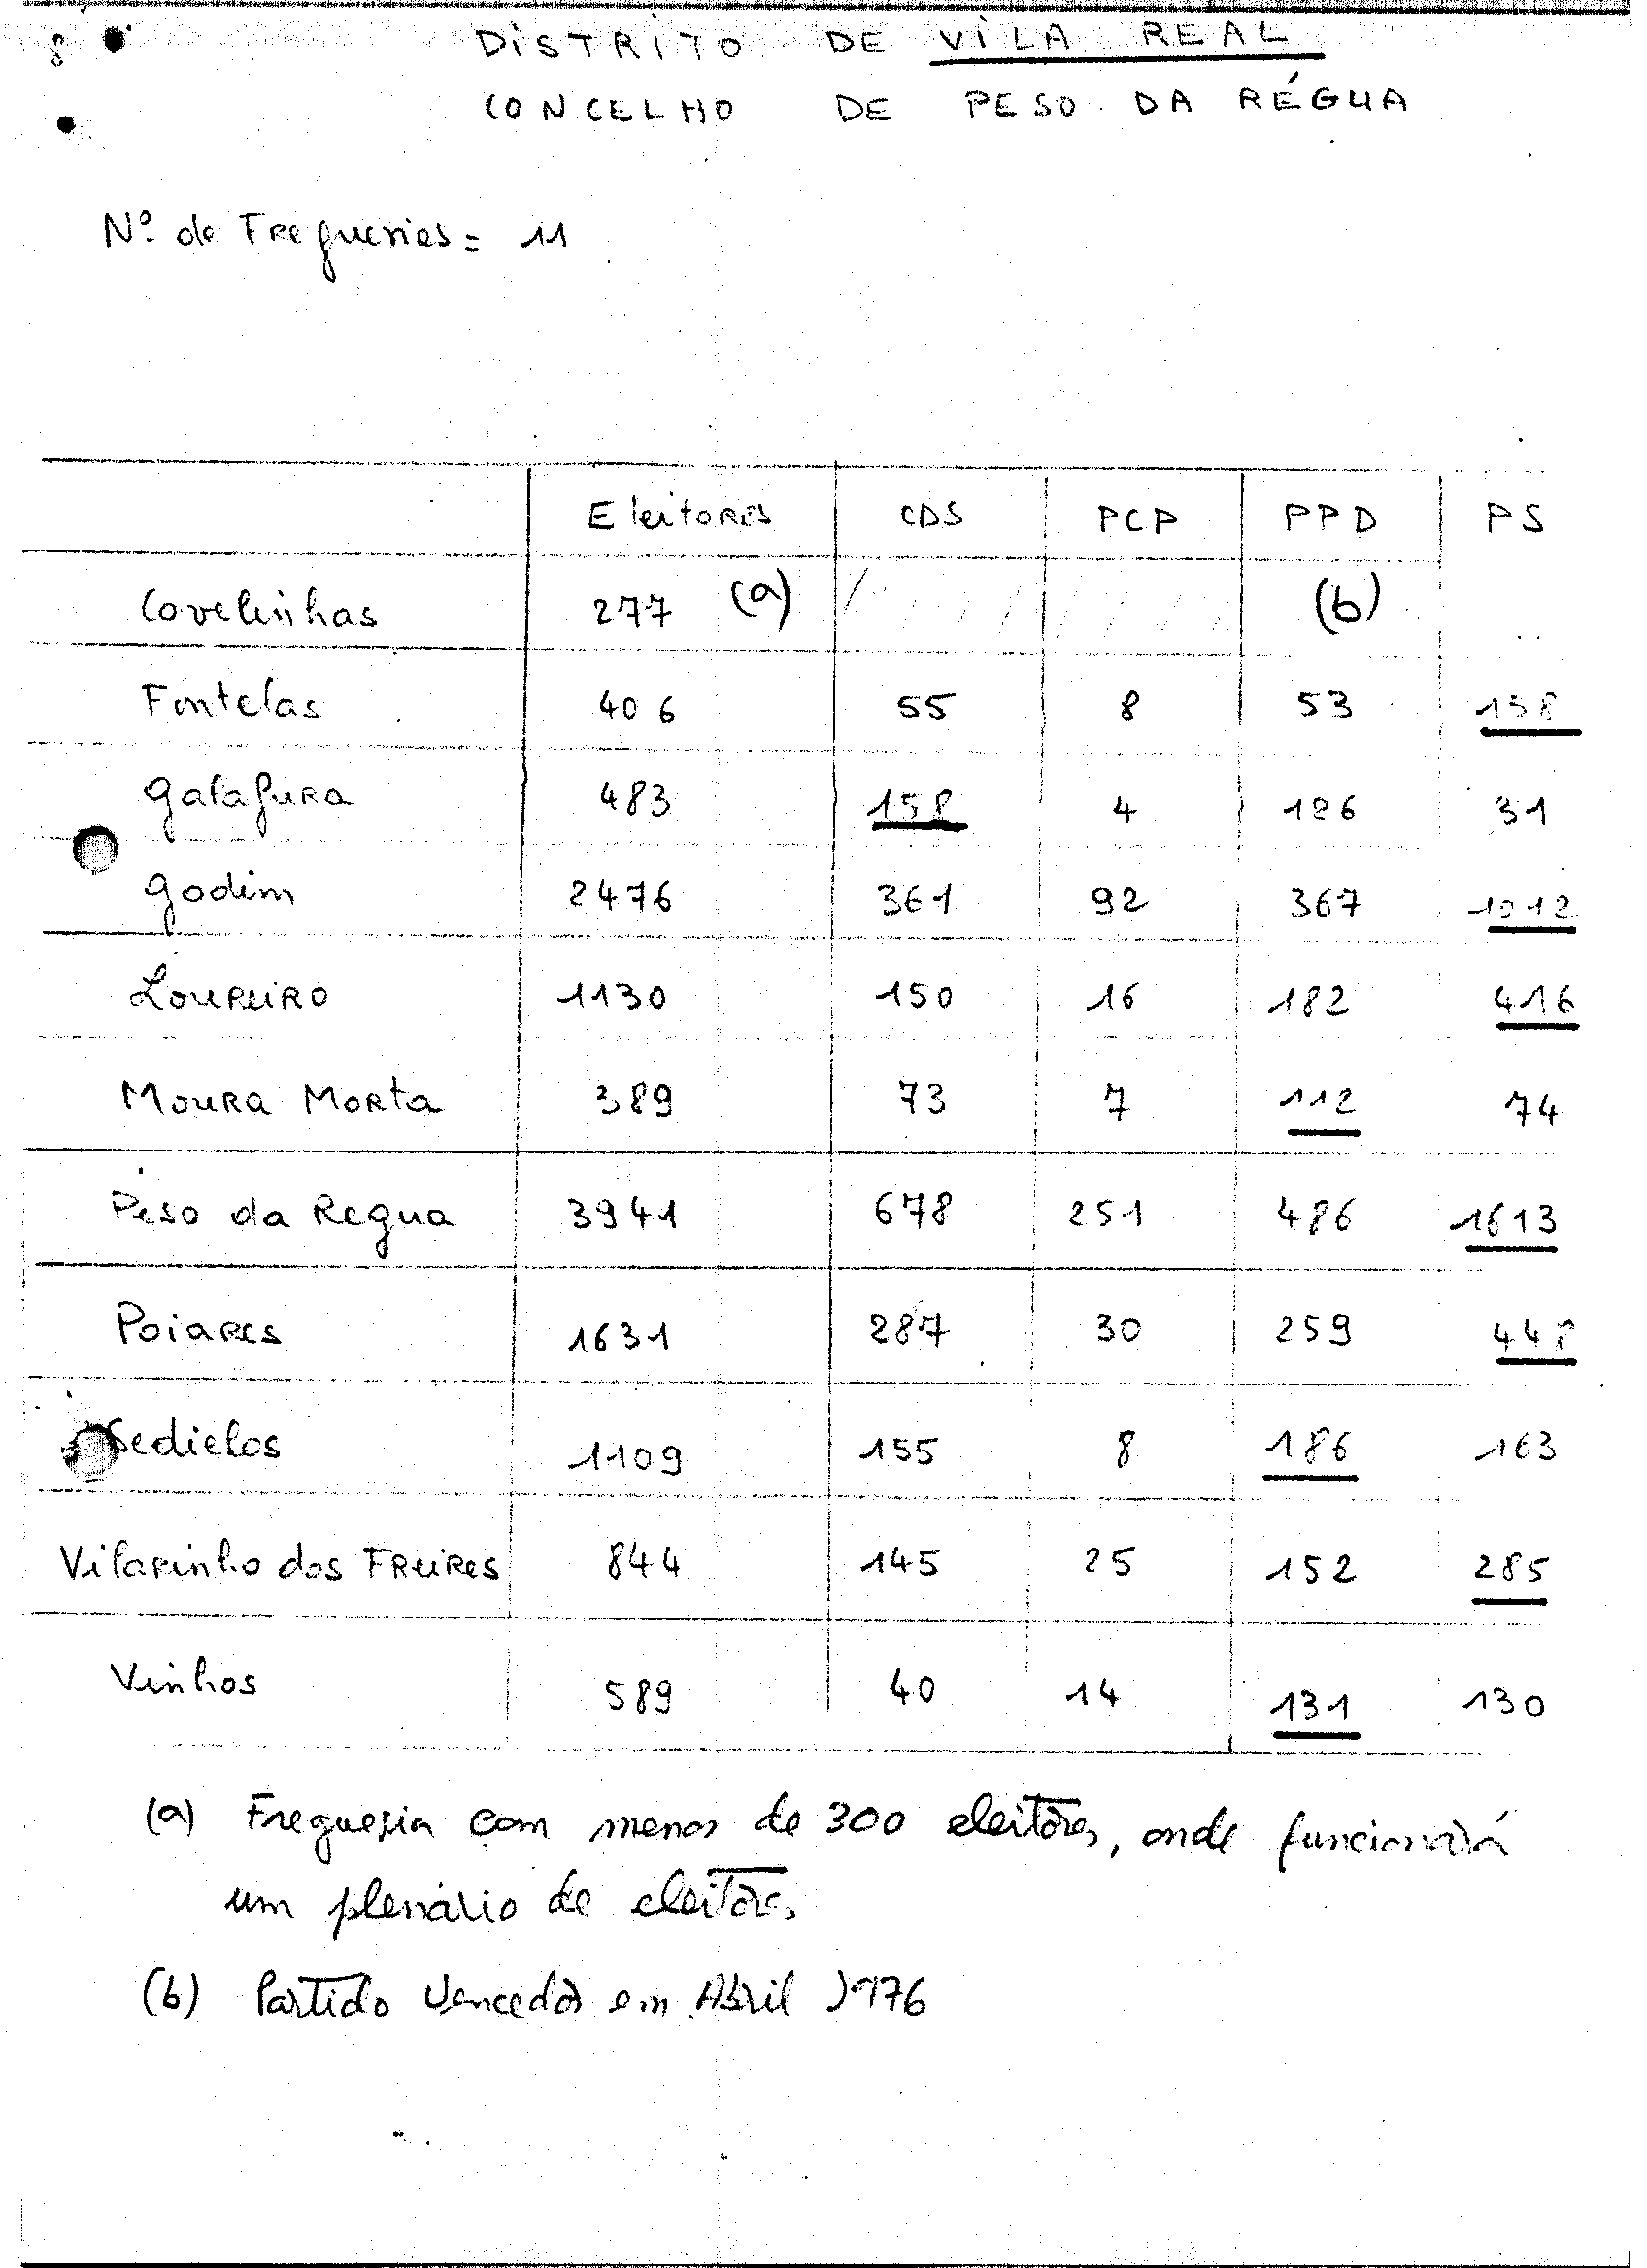 DISTRITO DE VILA REAL
CONCELHO DE PESO DA RÉGUA
Nº de Freguesias = 11
Eleitores CDS PCP PPD PS
Covelinhas 277 (a) (b)
Fontelas 406 55 8 53 158
Galafura 483 158 4 126 31
Godim 2476 361 92 367 1012
Loureiro 1130 150 16 182 416
Moura Morta 389 73 7 112 74
Peso da Regua 3941 678 251 486 1613
Poiares 1631 287 30 259 448
Sedielos 1109 155 8 186 163
Vilarinho dos Freires 844 145 25 152 285
Vinhos 589 40 14 131 130
(a) Freguesia com menos de 300 eleitores, onde funcionará
um plenário de eleitores
(b) Partido vencedor em Abril 1976